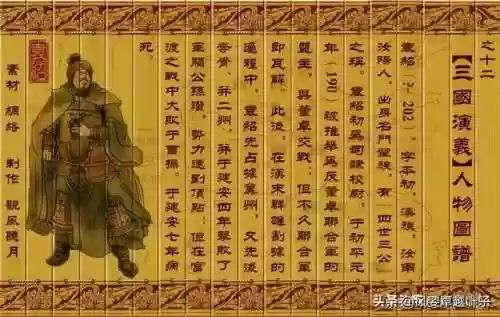 之十二
【三國演義】人物圖譜
袁紹（?-202），字本初，漢族，汝南
汝陽人，出身名門望族，有「四世三公」
之稱。袁紹初為司隸校尉，于初平元
年（190）被推舉為反董卓聯合軍的
盟主，與董卓交戰；但不久聯合軍
即瓦解。此後，在漢末群雄割據的
過程中，袁紹先占據冀州，又先後
奪青、并二州，并于建安四年擊敗了
軍閥公孫瓚，勢力達到頂點；但在官
渡之戰中大敗于曹操。于建安七年病
死。
袁紹
素材 網絡 制作 觀風聽月
头条